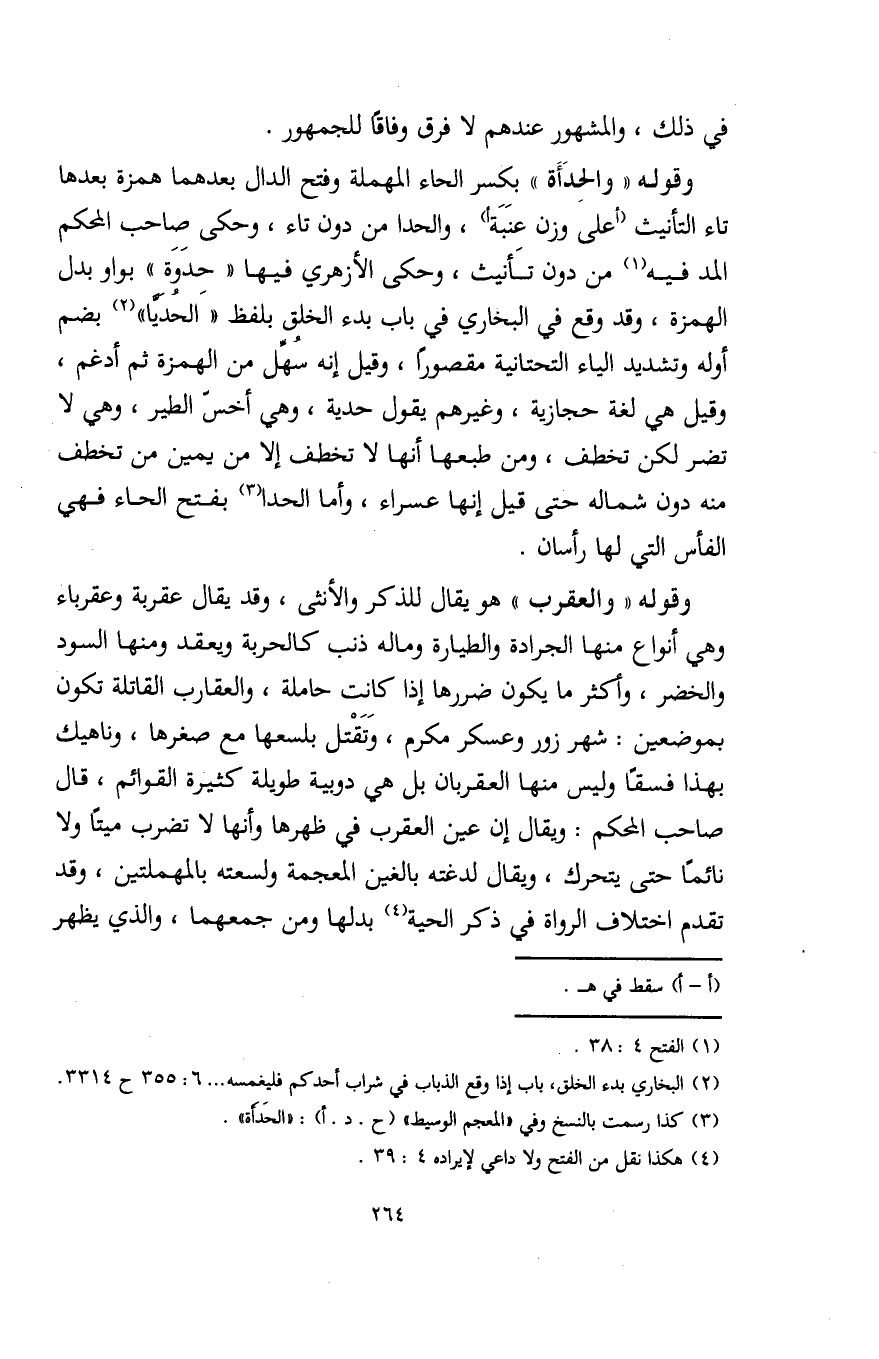 في ذلك ، والمشهور عندهم لا فرق وفاقًا للجمهور .
وقوله « والحِدَأَة » بكسر الحاء المهملة وفتح الدال بعدهما همزة بعدها
تاء التأنيث (أعلى وزن عِنَبَةأ) ، والحدا من دون تاء ، وحكى صاحب المحكم
المد فيه(١) من دون تأنيث ، وحكى الأزهري فيها « حِدَوَة » بواو بدل
الهمزة ، وقد وقع في البخاري في باب بدء الخلق بلفظ « الحُدَيَّا»(٢) بضم
أوله وتشديد الياء التحتانية مقصورًا ، وقيل إنه سُهِّل من الهمزة ثم أدغم ،
وقيل هي لغة حجازية ، وغيرهم يقول حدية ، وهي أخسّ الطير ، وهي لا
تضر لكن تخطف ، ومن طبعها أنها لا تخطف إلا من يمين من تخطف
منه دون شماله حتى قيل إنها عسراء ، وأما الحدا(٣) بفتح الحاء فهي
الفأس التي لها رأسان .
وقوله « والعقرب » هو يقال للذكر والأنثى ، وقد يقال عقربة وعقرباء
وهي أنواع منها الجرادة والطيارة وماله ذنب كالحربة ويعقد ومنها السود
والخضر ، وأكثر ما يكون ضررها إذا كانت حاملة ، والعقارب القاتلة تكون
بموضعين : شهر زور وعسكر مكرم ، وَتَقْتل بلسعها مع صغرها ، وناهيك
بهذا فسقًا وليس منها العقربان بل هي دويبة طويلة كثيرة القوائم ، قال
صاحب المحكم : ويقال إن عين العقرب في ظهرها وأنها لا تضرب ميتًا ولا
نائمًا حتى يتحرك ، ويقال لدغته بالغين المعجمة ولسعته بالمهملتين ، وقد
تقدم اختلاف الرواة في ذكر الحية(٤) بدلها ومن جمعهما ، والذي يظهر
(أ – أ) سقط في هـ .
(١) الفتح ٤ : ٣٨ .
(٢) البخاري بدء الخلق، باب إذا وقع الذباب في شراب أحدكم فليغمسه... ٦: ٣٥٥ ح ٣٣١٤.
(٣) كذا رسمت بالنسخ وفي «المعجم الوسيط» (ح . د . أ) : «الحَدَأَة» .
(٤) هكذا نقل من الفتح ولا داعي لإيراده ٤ : ٣٩ .
٢٦٤